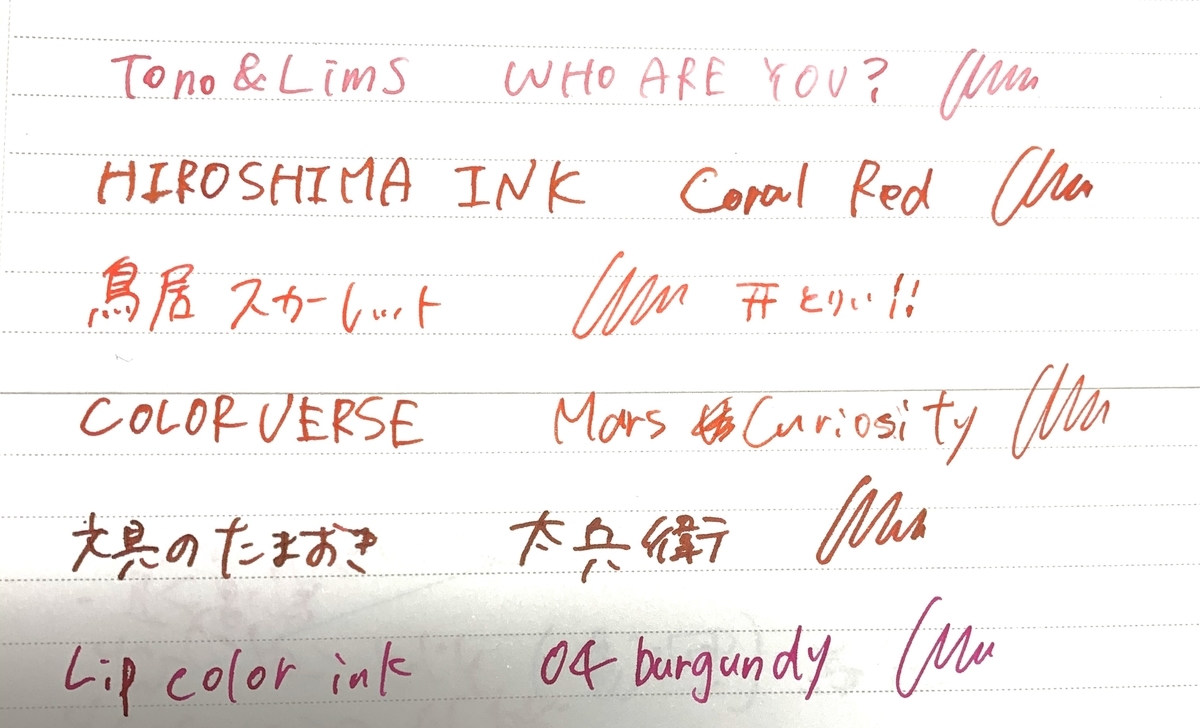 Tono & Lims WHO ARE YOU?
HIROSHIMA INK Coral Red
鳥居 スカーレット 开 とりい!!
COLORVERSE Mars Curiosity
文具のたまおき 太兵衛
Lip color ink 04 burgundy